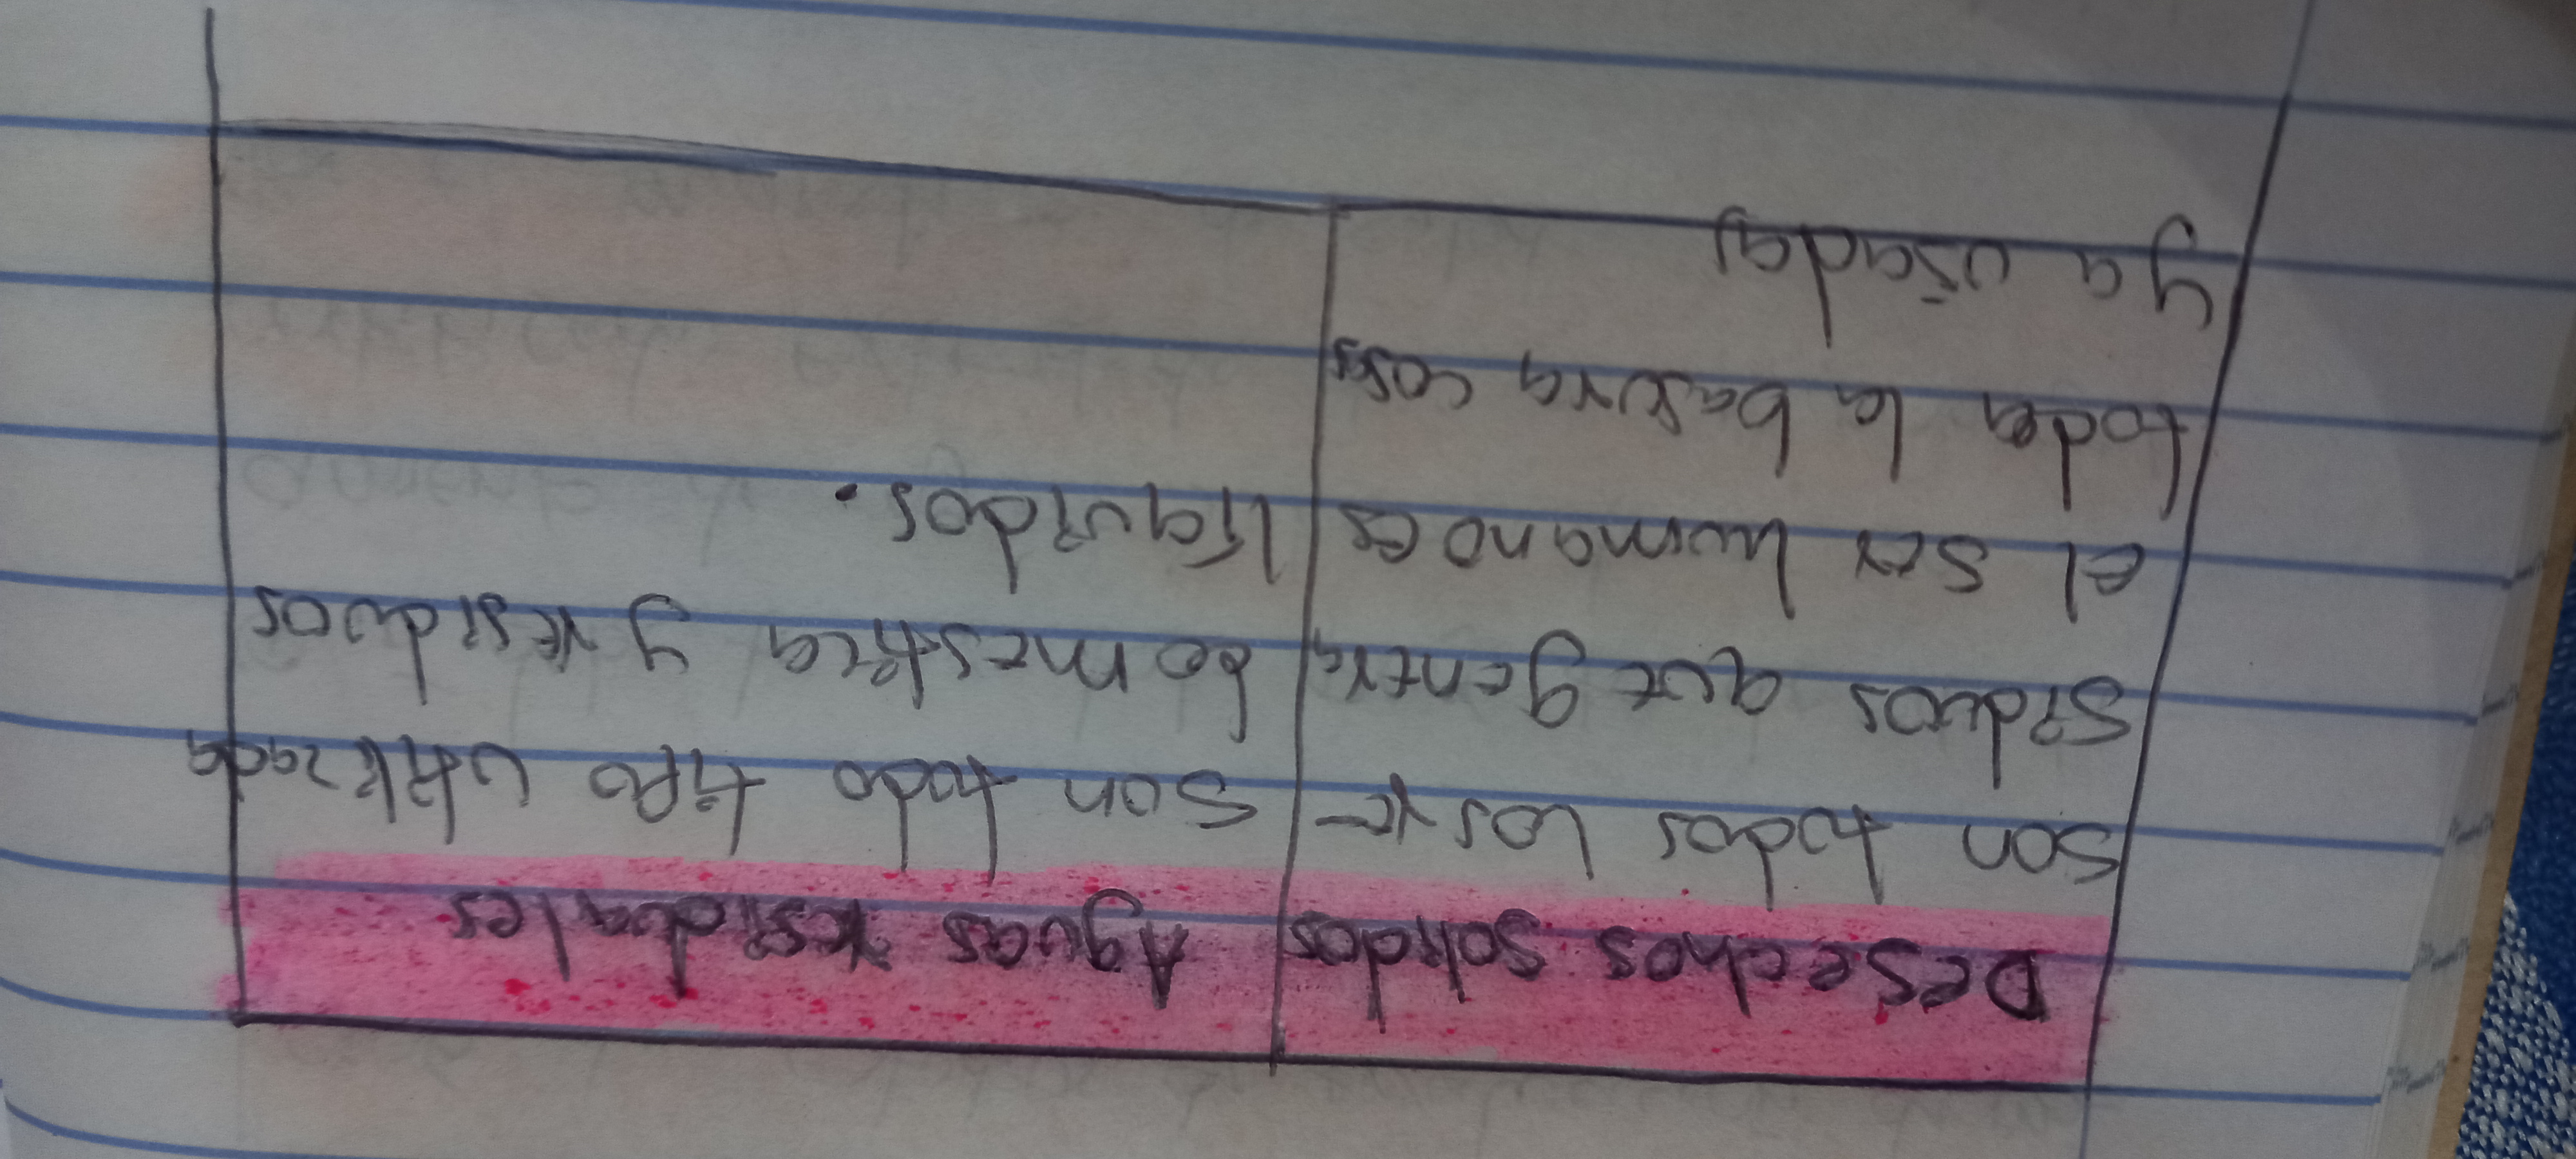 Desechos solidos
son todos los re-
siduos que genera
el ser humano es
toda la basura cosas
ya usadas
Aguas residuales
son todo tipo utilizada
domestica y residuos
liquidos.